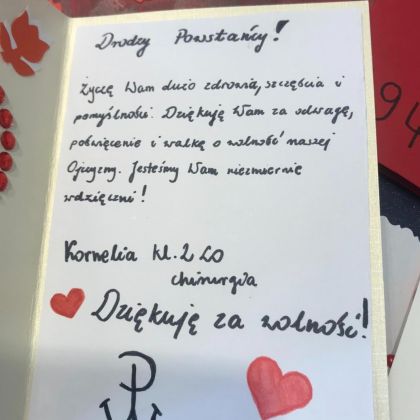 Drodzy Powstańcy!
Życzę Wam dużo zdrowia, szczęścia i
pomyślności. Dziękuję Wam za odwagę,
poświęcenie i walkę o wolność naszej
Ojczyzny. Jesteśmy Wam niezmiernie
wdzięczni!
Kornelia kl. 2 LO
chirurgia
Dziękuję za wolność!
PW
94